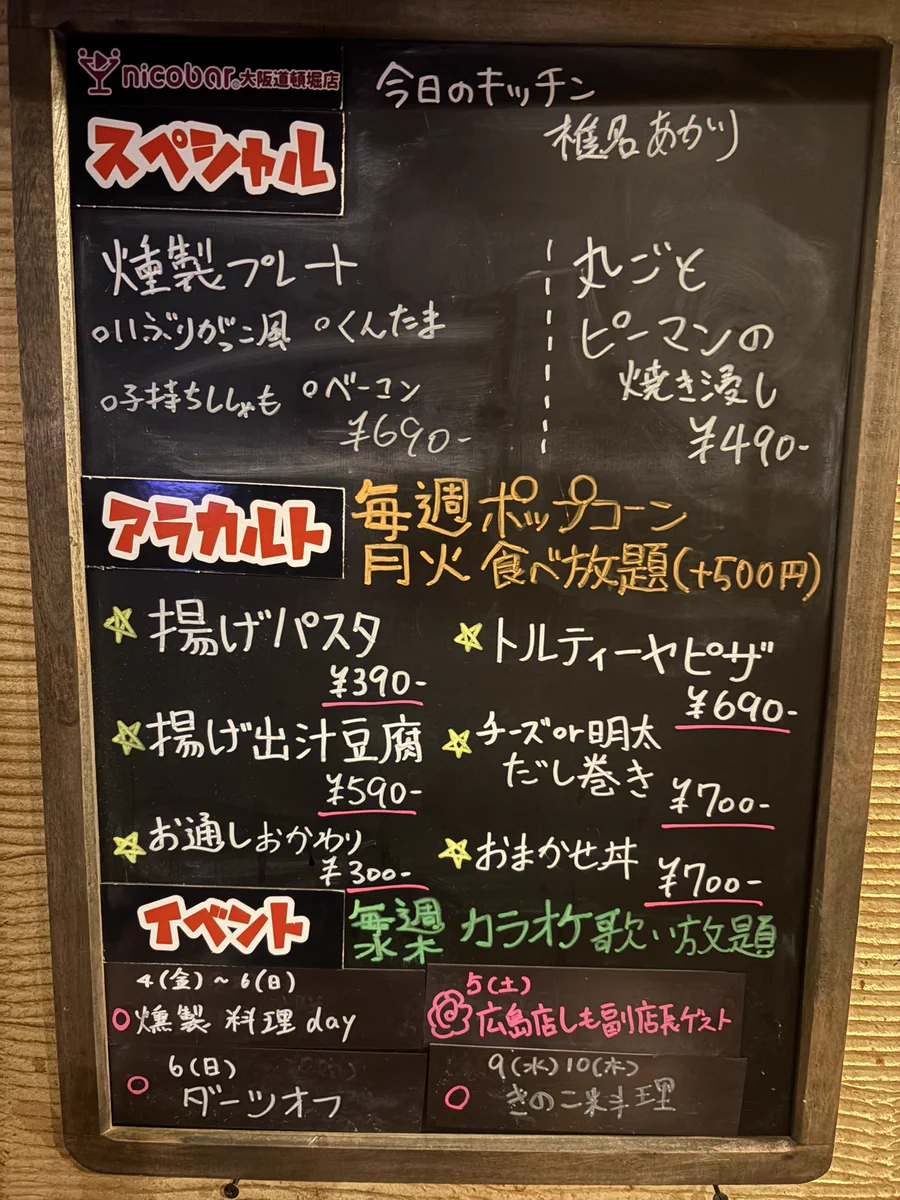 nicobar® 大阪道頓堀店
今日のキッチン
椎名あかり
スペシャル
燻製プレート
○いぶりがっこ風 ○くんたま
○子持ちししゃも ○ベーコン
¥690-
丸ごと
ピーマンの
焼き浸し
¥490-
アラカルト
毎週 ポップコーン
月火 食べ放題(+500円)
☆ 揚げパスタ
¥390-
☆ トルティーヤピザ
¥690-
☆ 揚げ出汁豆腐
¥590-
☆ チーズor明太
だし巻き
¥700-
☆ お通しおかわり
¥300-
☆ おまかせ丼
¥700-
イベント
毎週
水木 カラオケ歌い放題
4(金)~6(日)
○燻製 料理 day
5(土)
広島店しも副店長ゲスト
6(日)
○ ダーツオフ
9(水)10(木)
○ きのこ料理